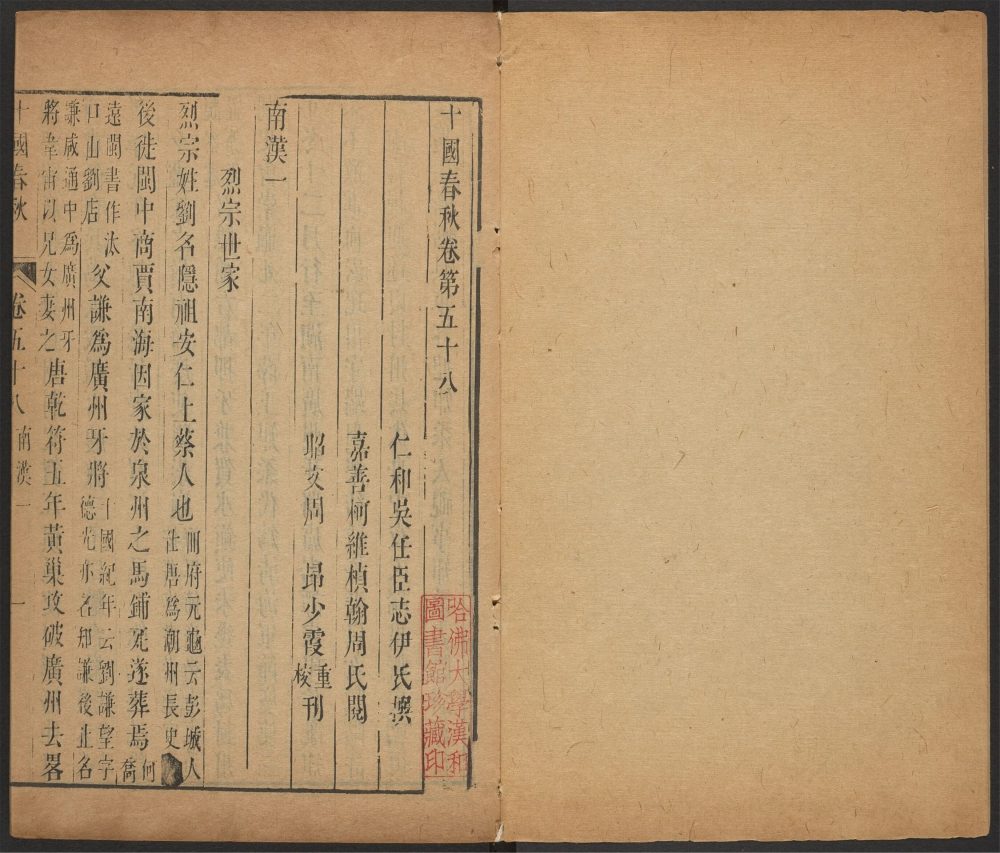 十國春秋卷第五十八
仁和吳任臣志伊氏撰
嘉善柯維楨翰周氏閱
昭文周昂少霞重校刊
南漢一
烈宗世家
烈宗姓劉名隱祖安仁上蔡人也冊府元龜云彭城人仕唐爲潮州長史
後徙閩中商賈南海因家於泉州之馬鋪死遂葬焉何喬
遠閩書作汰口山劉店父謙爲廣州牙將十國紀年云劉謙望字德光亦名知謙後止名
謙咸通中爲廣州牙將韋宙以兄女妻之唐乾符五年黃巢攻破廣州去畧
十國春秋 卷五十八 南漢一 一
哈佛大學漢和
圖書館珍藏印